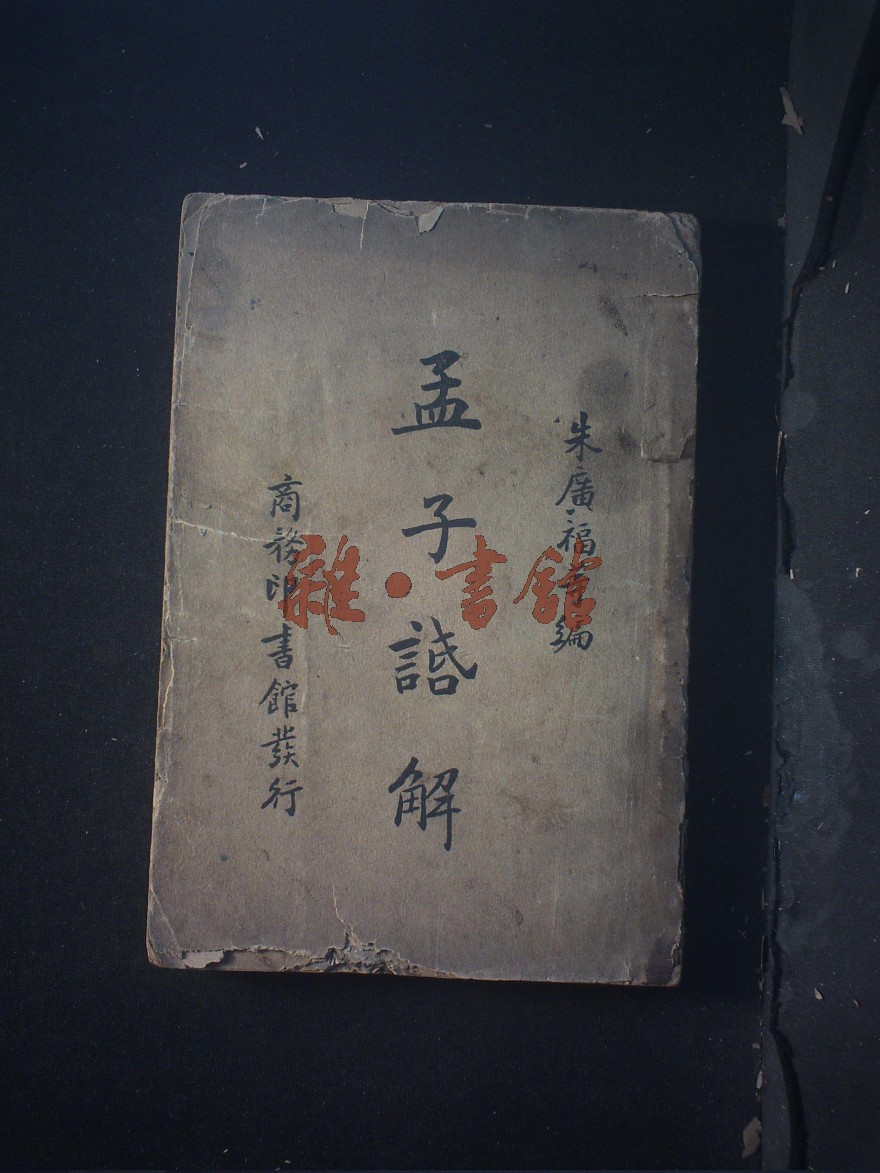 朱廣福編
孟子諙解
商務印書館發行
雜·書館